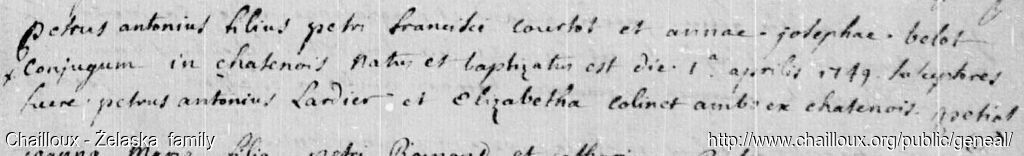 petrus antonius filius petri francisci courtot et annae-josephae-belot
conjugum in chatenois natus et baptizatus est die 1ª aprilis 1749. susceptores
fuere petrus antonius Lardier et Elizabetha colinet ambo ex chatenois. petiot
Chailloux - Żelaska family
http://www.chailloux.org/public/geneal/
petri
et